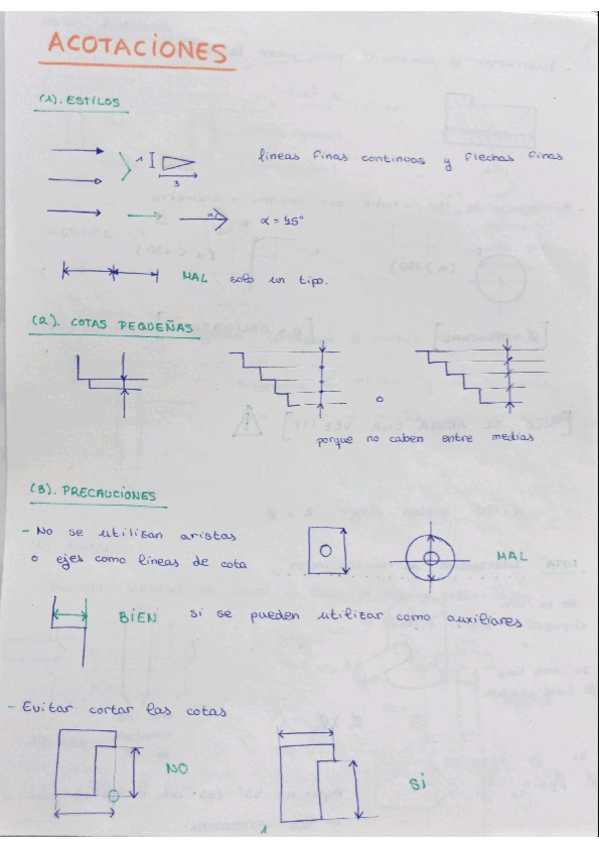 ACOTACIONES
(1). ESTILOS
1
3
lineas finas continuas y flechas finas
α
α = 45°
MAL solo un tipo.
(2). COTAS PEQUEÑAS
o
porque no caben entre medias
(3). PRECAUCIONES
- No se utilizan aristas
o ejes como lineas de cota
MAL
BIEN si se pueden utilizar como auxiliares
- Evitar cortar las cotas
NO
Si
1